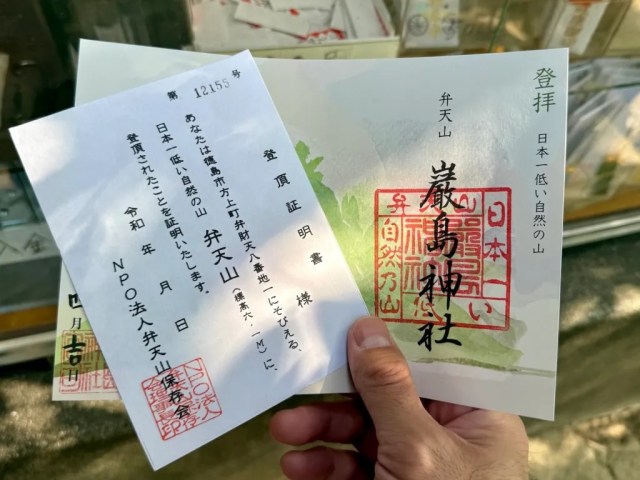 第 12155 号
登頂証明書
様
あなたは徳島市方上町弁財天八番地一にそびえる、
日本一低い自然の山 弁天山(標高六.一M)に、
登頂されたことを証明いたします。
令和 年 月 日
NPO法人弁天山保存会
登拝
日本一低い自然の山
弁天山
巌島神社
日本一い
自然乃山
四月吉日